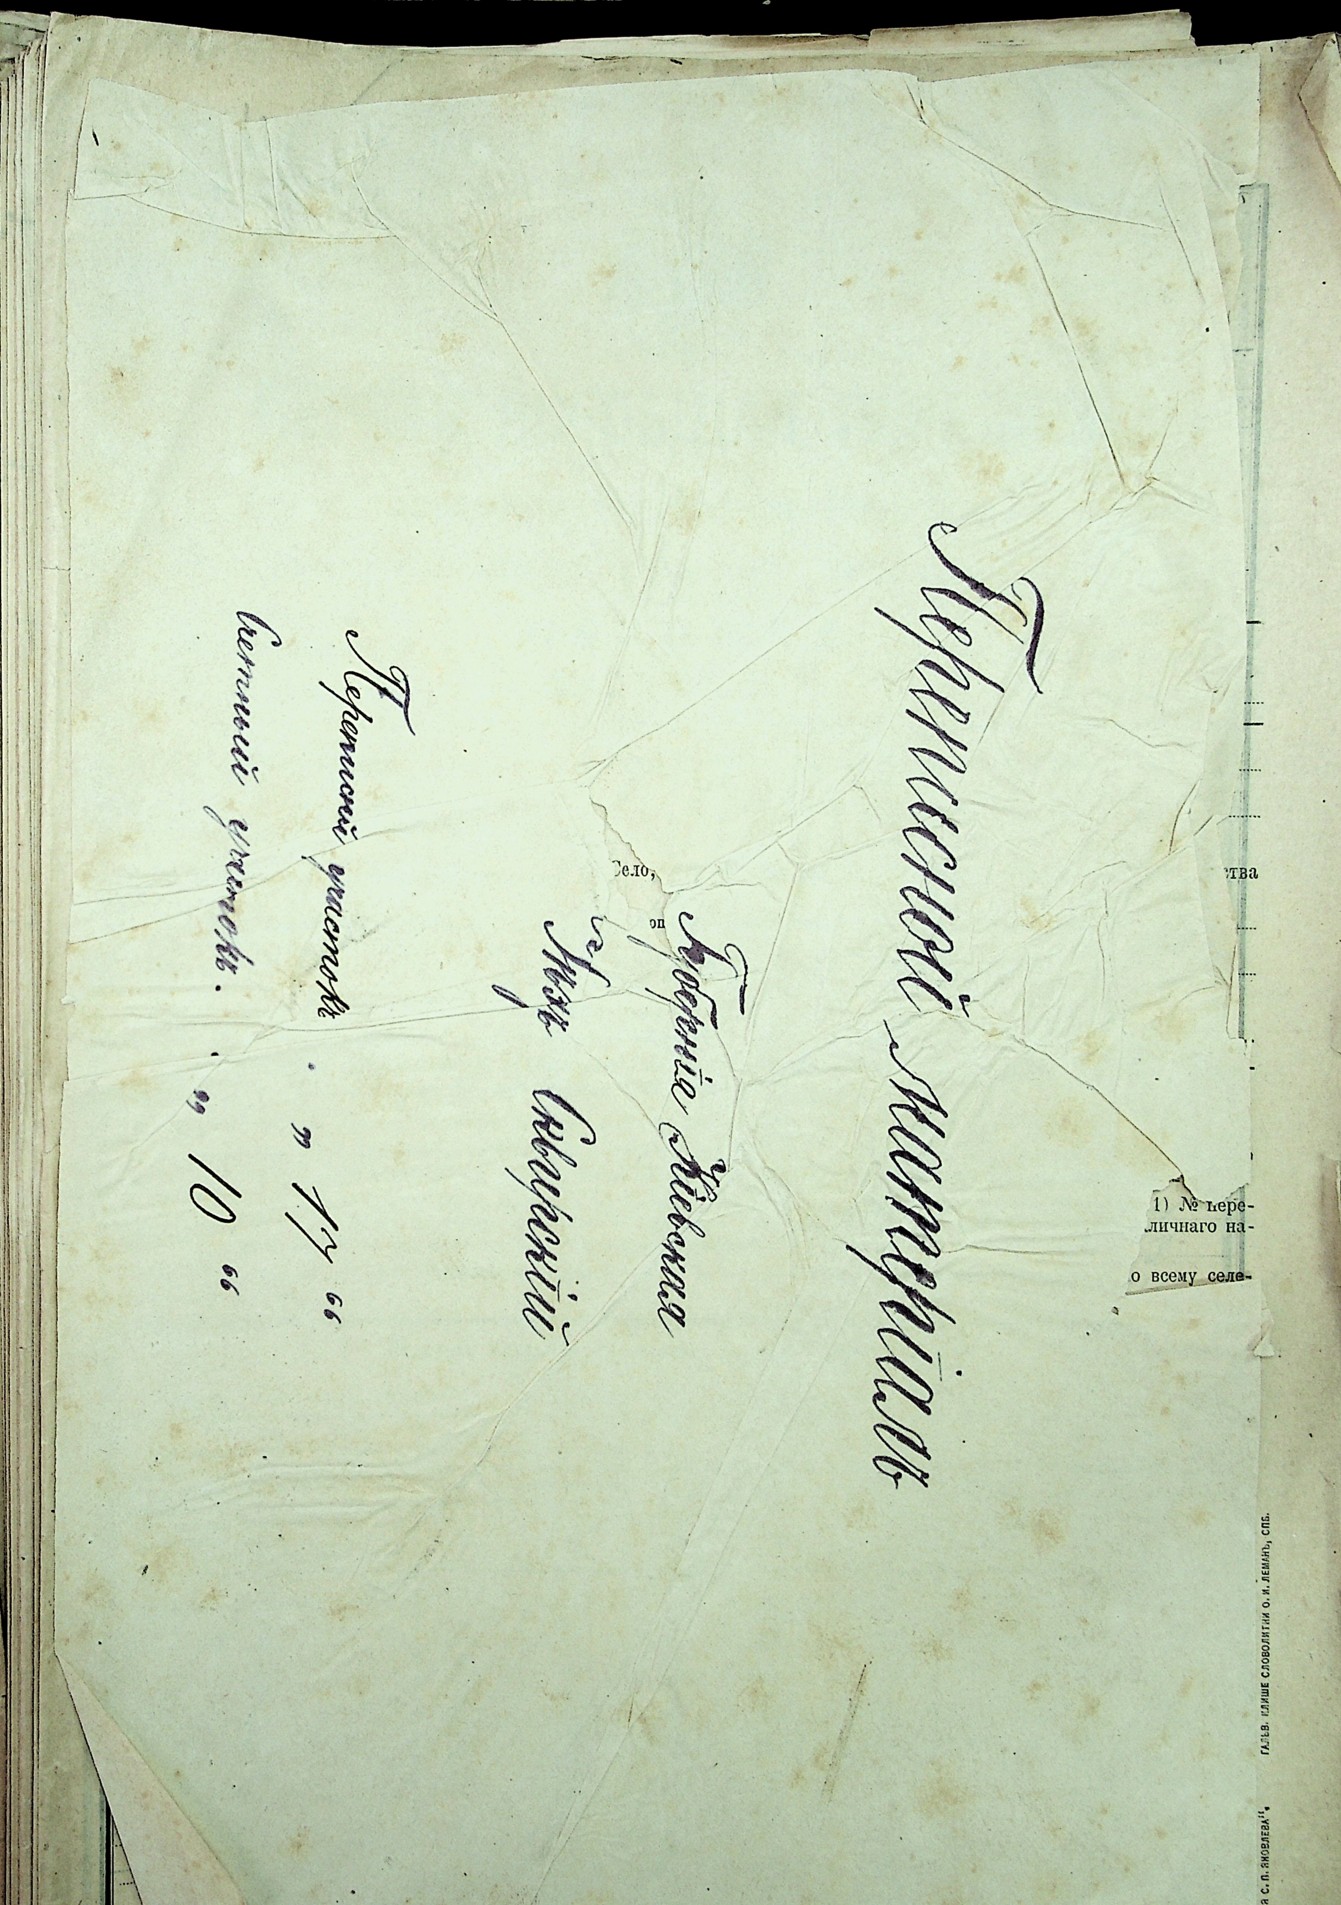 Переписной матеріалъ
Губернія Кіевская
Уѣздъ Сквирскій
Переписной участокъ . „ 17 “
Счетный участокъ . . „ 10 “
Село,
оп
ства
1) № пере-
личнаго на-
о всему селе-
ГАЛЬВ. КЛИШЕ СЛОВОЛИТНИ О. И. ЛЕМАНЪ, СПБ.
С. П. ЯКОВЛЕВА“.